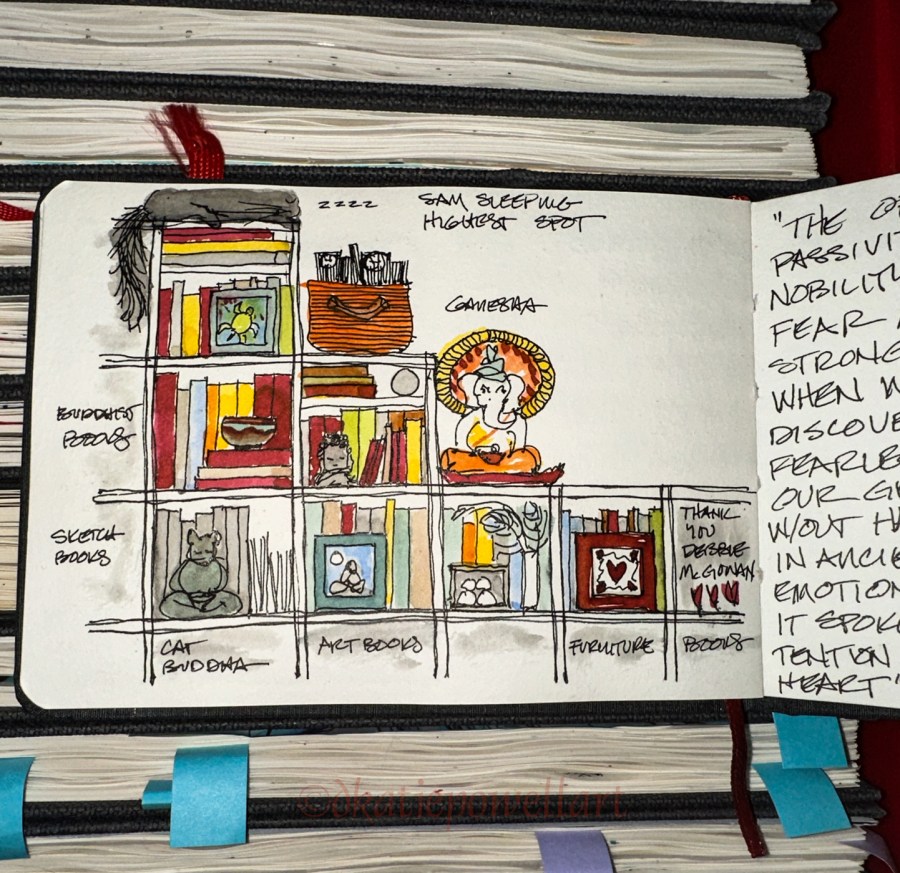 ZZZZ
SAM SLEEPING
HIGHEST SPOT
GANESHA
BUDDHIST
BOOKS
SKETCH
BOOKS
THANK
YOU
DEBBIE
McGOWAN
CAT
BUDDHA
ART BOOKS
FURNITURE
BOOKS
"THE
PASSIVIT
NOBILITY
FEAR
STRONG
WHEN W
DISCOVE
FEARLE
OUR G
W/OUT H
IN ANCIE
EMOTION
IT SPOK
TENTION
HEART"
©dkatiepowellart